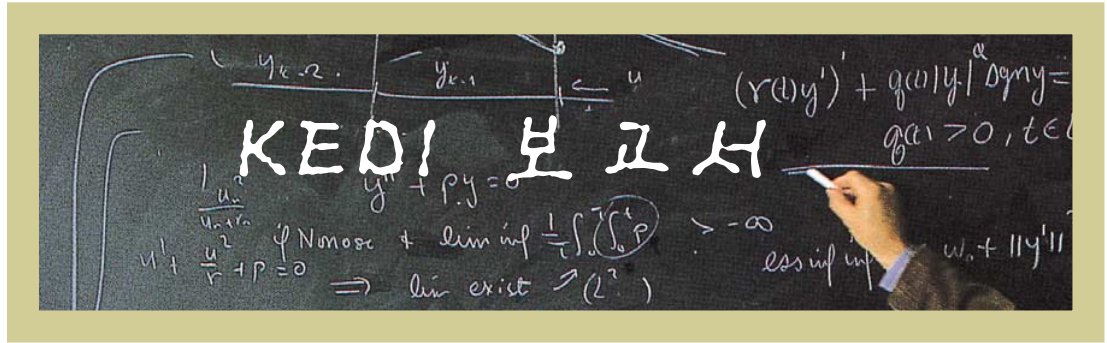 y_{k-2}. y_{k-1} ← u
(r(t)y')' + q(t)|y|^α sgn y =
q(t) > 0, t ∈
KEDI 보고서
y'' + p.y = 0
u' + u²/r + p = 0
if Nonosc + lim inf 1/t ∫₀ᵗ (∫₀ᵗ p) > -∞
⇒ lim exist
ess inf